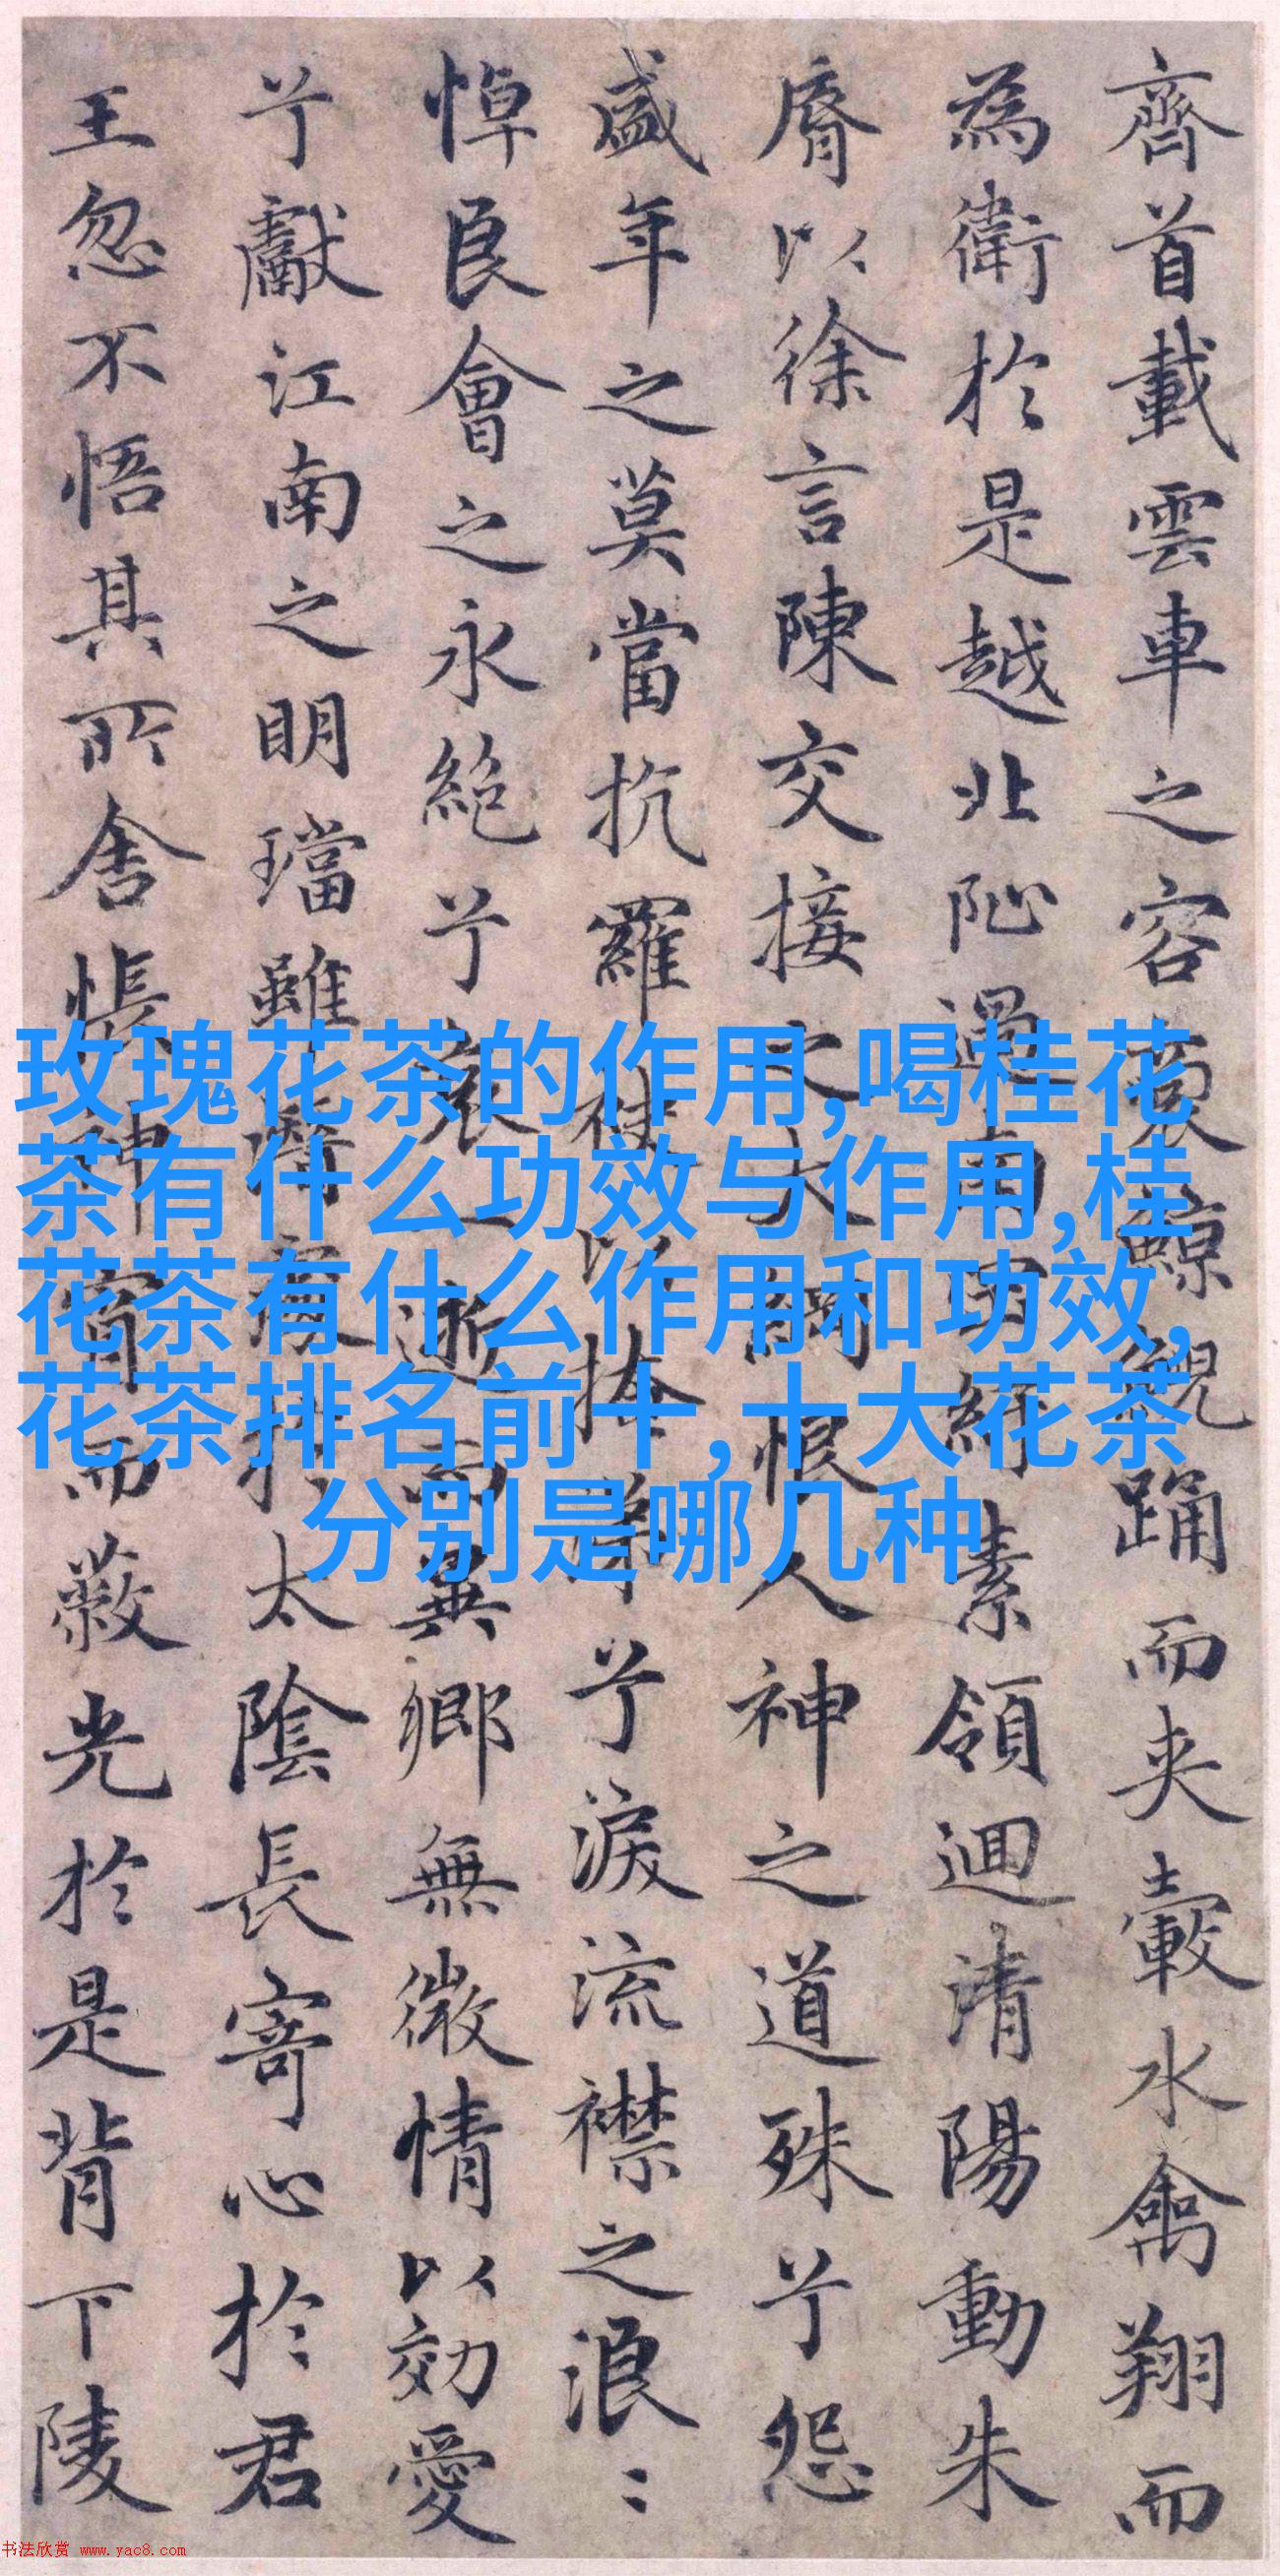 齊首載雲車之容裔鯨鯢踊而夾轂水禽翔而
為衛於是越北沚過南岡紆素領迴清陽動朱
脣以徐言陳交接之大綱恨人神之道殊兮怨
盛年之莫當抗羅袂以掩涕兮淚流襟之浪〻
悼良會之永絕兮哀一逝而異鄉無微情以効愛
兮獻江南之明璫雖潛處於太陰長寄心於君
王忽不悟其所舍悵神宵而蔽光於是背下陵
玫瑰花茶的作用,喝桂花
茶有什么功效与作用,桂
花茶有什么作用和功效,
花茶排名前十,十大花茶
分别是哪几种
书法欣赏 www.yac8.com